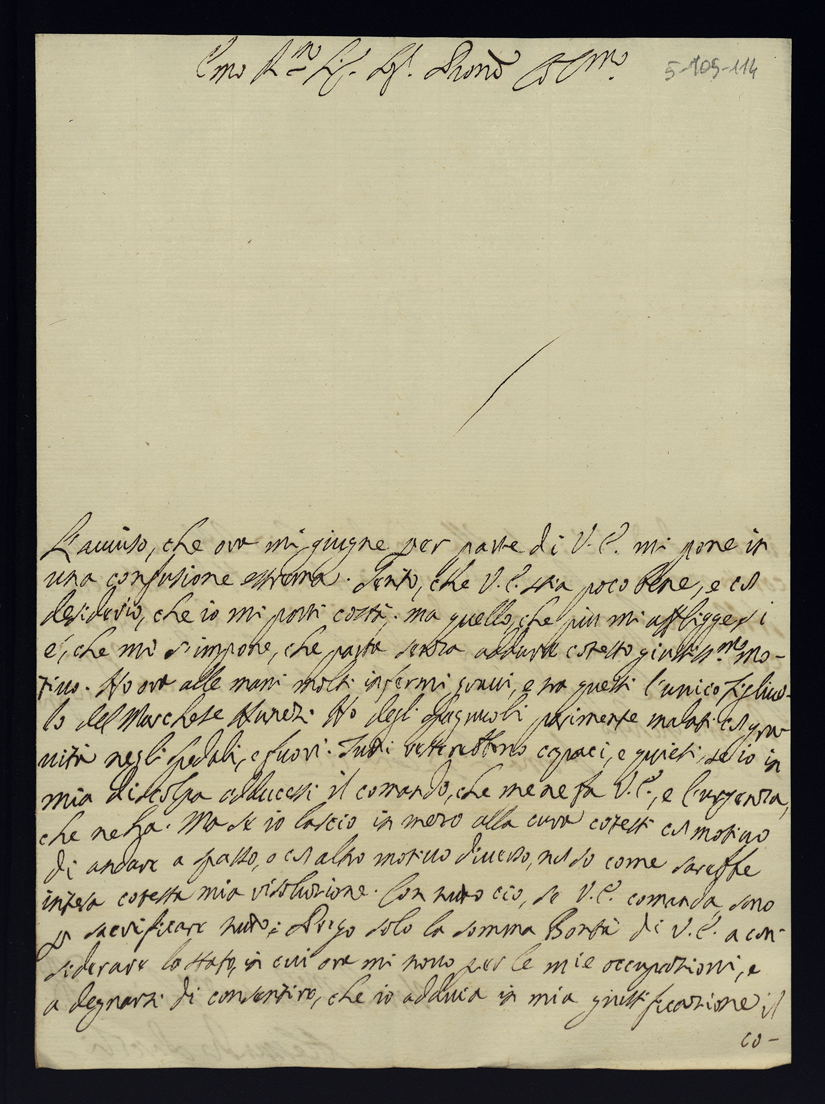 Emo Rmo Sig. Sig. Prone Colmo
5-109-114
L'auuiso, che ora mi giugne per parte di V.E. mi pone in
una confusione estrema. Sento, che V.E. stia poco bene, e col
desiderio, che io mi porti costà. ma quello, che più mi affligge si
è, che mi s'impone, che parta senza addurre cotesto giustissmo mo-
tiuo. Ho ora alle mani molti infermi graui, e tra questi l'unico figliuo-
lo del Marchese Nunezi. Ho degli Spagnuoli parimente malati con gra-
uità negli spedali, e fuori. Tutti resterebbero capaci, e quieti, se io in
mia discolpa adducessi il comando, che me ne fa V.E., e l'urgenza,
che ne ha. Ma se io lascio in mezo alla cura cotesti col motiuo
di andare a spasso, o col altro motiuo diuerso, nol so come sarebbe
intesa cotesta mia risoluzione. Con tutto ciò, se V.E. comanda, sono
p sacrificare tutto: Prego solo la somma Bontà di V.E. a con-
siderare lo stato, in cui ora mi trouo per le mie occupazioni, e
a degnarsi di consentire, che io adduca in mia giustificazione il
co-